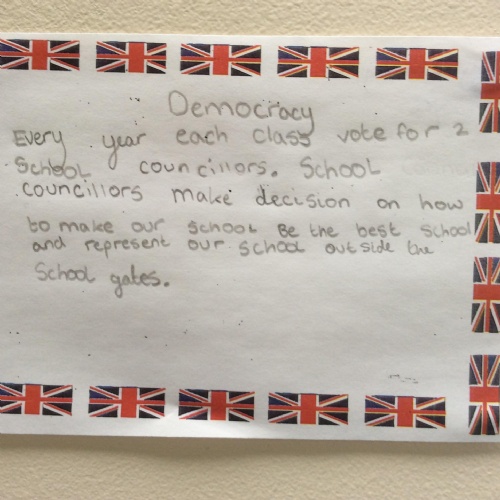 Democracy
Every year each class vote for 2
School councillors. School
councillors make decision on how
to make our school Be the best school
and represent our school outside the
School gates.